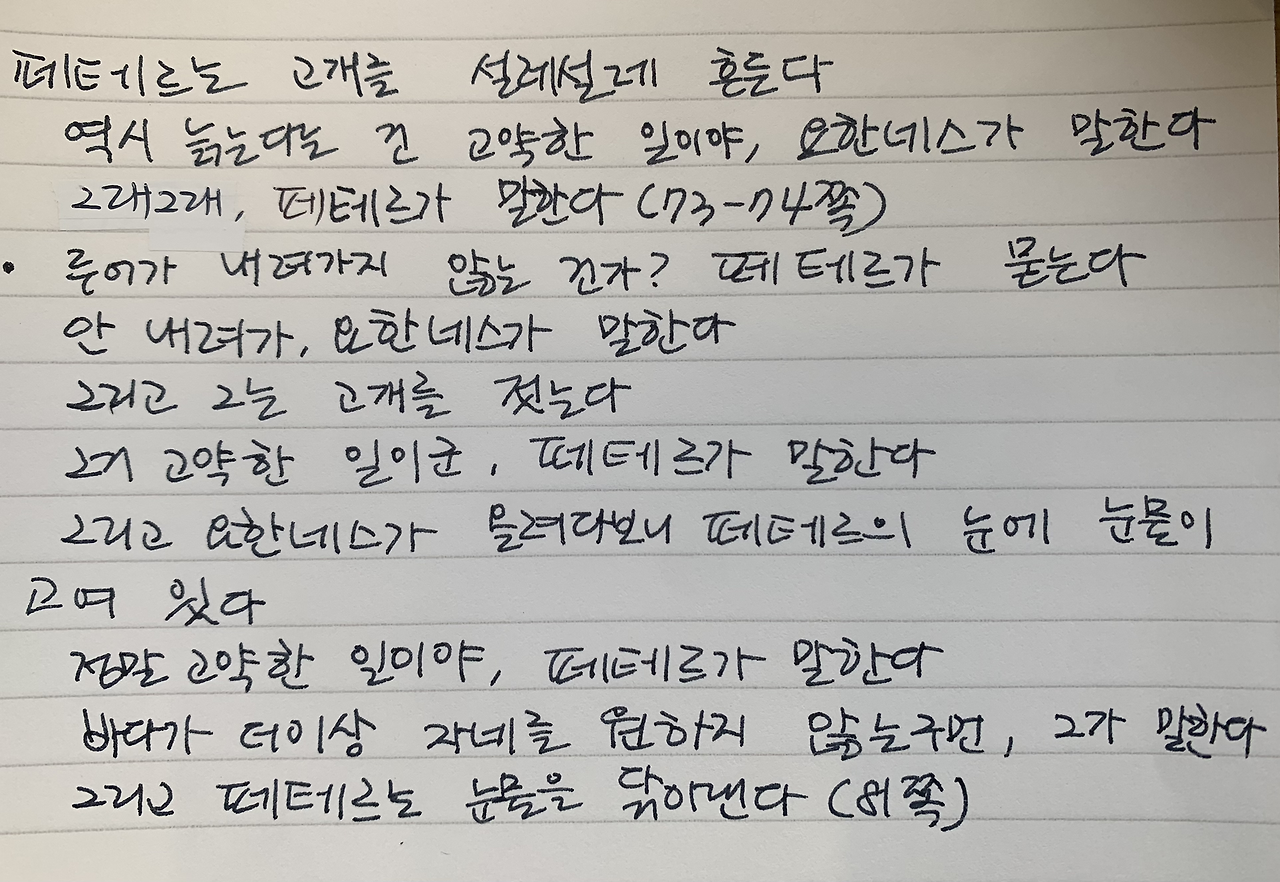 페테르는 고개를 설레설레 흔든다
역시 늙는다는 건 고약한 일이야, 요한네스가 말한다
그래그래, 페테르가 말한다 (73-74쪽)
• 루어가 내려가지 않는 건가? 페테르가 묻는다
안 내려가, 요한네스가 말한다
그리고 그는 고개를 젓는다
그거 고약한 일이군, 페테르가 말한다
그리고 요한네스가 올려다보니 페테르의 눈에 눈물이
고여 있다
정말 고약한 일이야, 페테르가 말한다
바다가 더이상 자네를 원하지 않는구먼, 그가 말한다
그리고 페테르는 눈물을 닦아낸다 (81쪽)